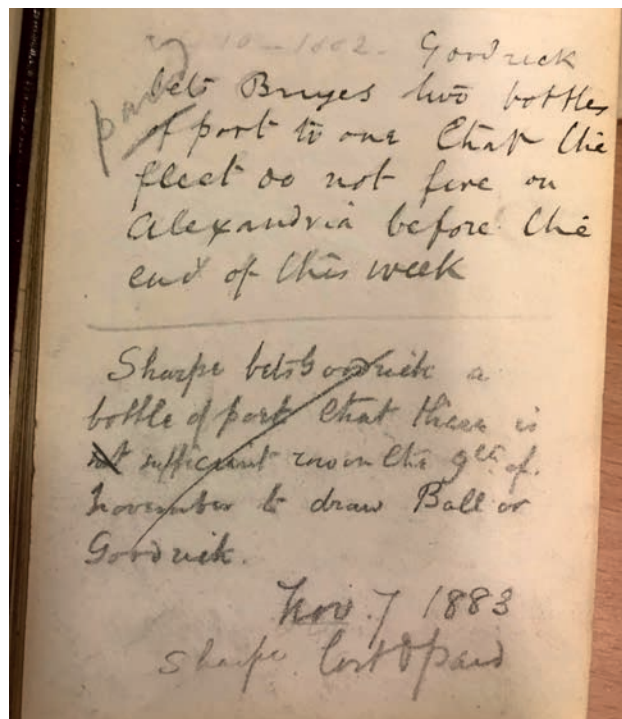 paid
10 - 1882. Goodrick
bets Bruges two bottles
of port to one that the
fleet do not fire on
Alexandria before the
end of this week
Sharpe bets Goodrick a
bottle of port that there is
not sufficient row on the 9th of
November to draw Ball or
Goodrick.
Nov. 7 1883
Sharpe lost & paid